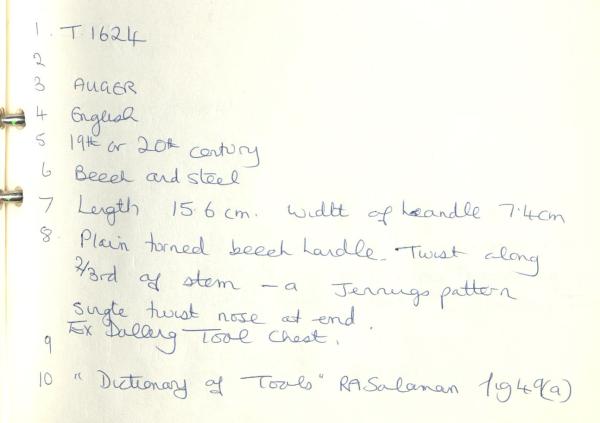 1. T.1624
2
3 AUGER
4 English
5 19th or 20th century
6 Beech and steel
7 Length 15.6 cm. width of handle 7.4cm
8. Plain turned beech handle. Twist along
2/3rd of stem - a Jennings pattern
single twist nose at end.
Ex Tool Chest.
9
10 "Dictionary of Tools" RA Salaman fig 49(a)